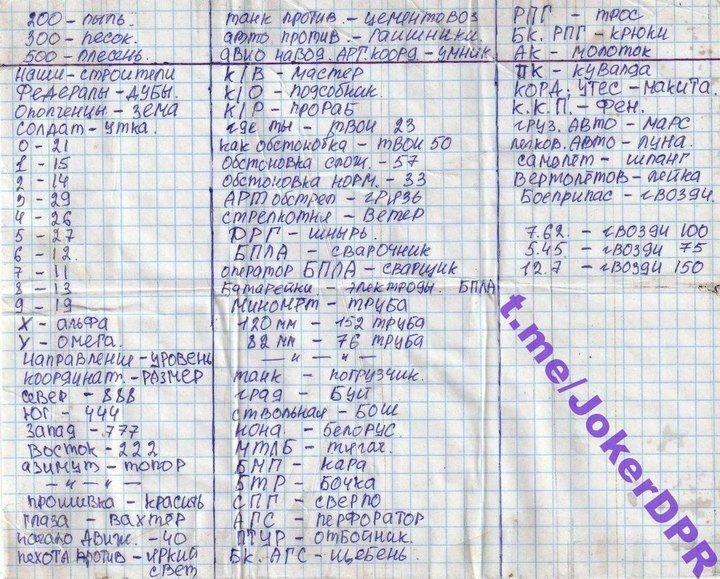 200 - пыль.
300 - песок.
500 - плесень.
наши - строители
Федералы - дубы.
Ополченцы - зема
Солдат - утка.
0 - 21
1 - 15
2 - 14
3 - 29
4 - 26
5 - 27
6 - 12.
7 - 11
8 - 13
9 - 19
X - альфа
У - омега.
направление - уровень
координат. - размер
север - 888
Юг - 444
Запад - 777
Восток - 222
азимут - топор
— " — " —
прошивка - красить
глаза - вахтёр
начало движ. - 40
пехота против - яркий
свет
танк против. - цементовоз
авто против - гаишники.
авио навод. арт. коорд - умник.
К/В - мастер
К/О - подсобник.
К/Р - прораб
где ты - твои 23
как обстоновка - твои 50
обстоновка слож. - 57
обстоновка норм. - 33
АРТ обстрел - грязь
стрелкотня - ветер
ДРГ - шнырь.
БПЛА - сварочник
оператор БПЛА - сварщик
Батарейки - электроды. БПЛА
Миномёт - труба
120 мм - 152 труба
82 мм - 76 труба
— " — " —
танк - погрузчик.
град - Буй
ствольная - Бош
нона - белорус.
МТЛБ - тягач.
БМП - кара
БТР - бочка
СПГ - сверло
АГС - перфоратор
ПТУР - отбойник.
Бк. АГС - щебень.
РПГ - трос
Бк. РПГ - крюки
АК - молоток
ПК - кувалда
КОРД; УТЕС - макита.
К.К.П. - фен.
груз. авто - марс
легков. авто - луна.
самолет - шланг
Вертолетов - лейка
Боеприпас - гвозди.
7.62. - гвозди 100
5.45 - гвозди 75
12.7 - гвозди 150
t.me/JokerDPR